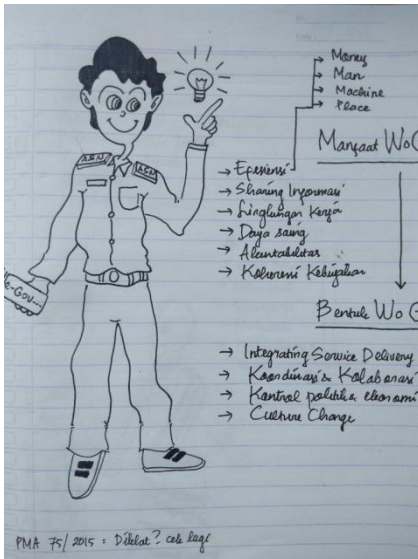 Money
Man
Machine
Place
Manfaat WoG
ASN
ASN
→ Efesiensi
→ Sharing Informasi
→ Lingkungan Kerja
→ Daya saing
→ Akuntabilitas
→ Koherensi Kebijakan
e-Gov
Bentuk WoG
→ Integrating Service Delivery
→ Koordinasi & Kolaborasi
→ Kontrol politik & ekonomi
→ Culture Change
PMA 75/2015 : Diklat? cek lagi